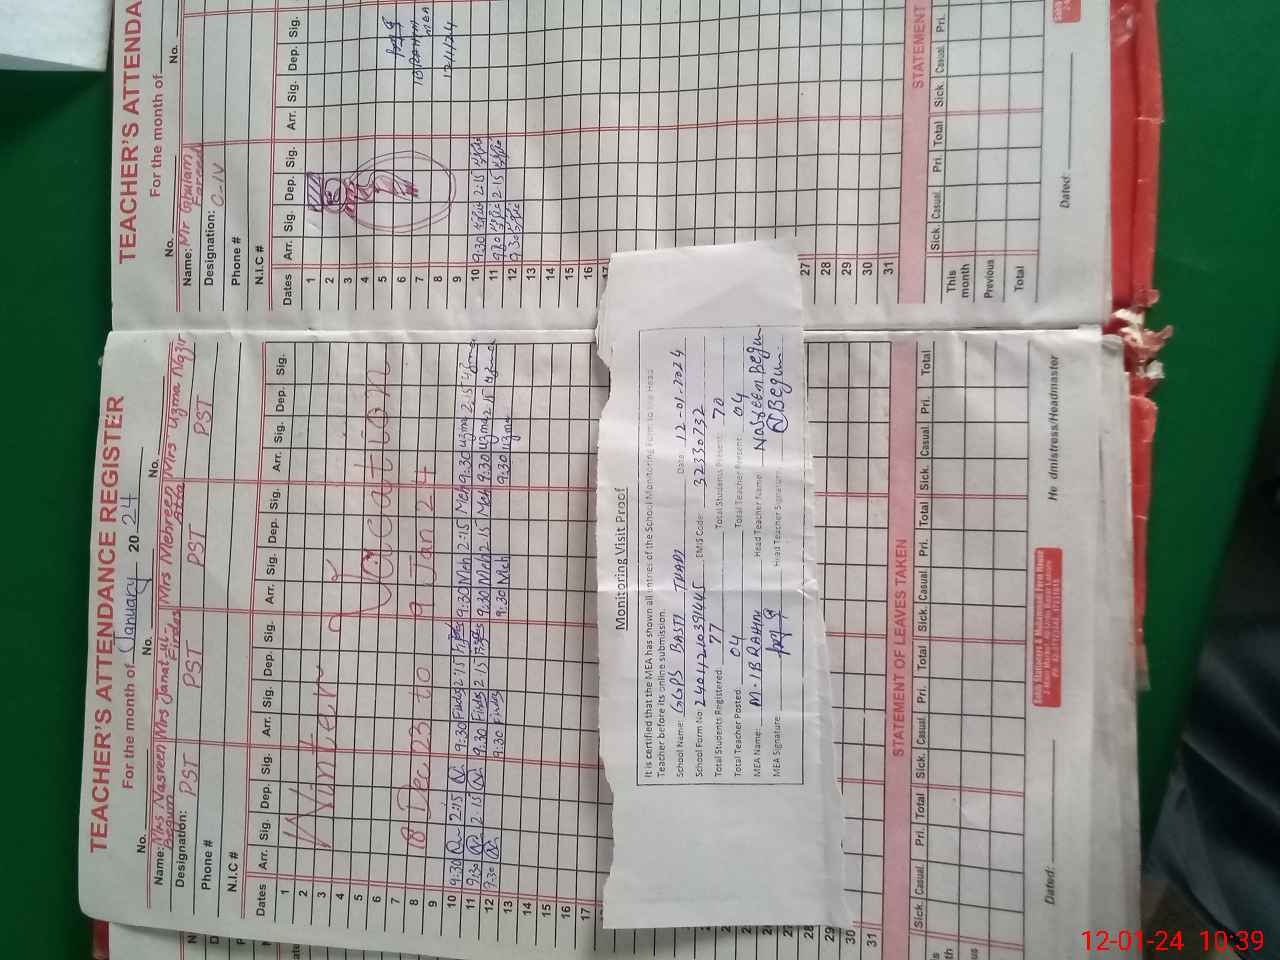 TEACHER'S ATTENDANCE REGISTER
For the month of January 2024
No. No. No.
Name: Mrs Nasreen Begum Mrs Janat-ul-Firdos Mrs Mehreen Atta Mrs Uzma Nazir
Designation: PST PST PST PST
Phone #
N.I.C #
Dates Arr. Sig. Dep. Sig. Arr. Sig. Dep. Sig. Arr. Sig. Dep. Sig. Arr. Sig. Dep. Sig.
1
2
3
4
5
6
7
8
9
Winter Vacation
18 Dec 23 to 9 Jan 24
10 9:30 2:15 9:30 Firdos 2:15 Firdos 9:30 Meh 2:15 Meh 9:30 Uzma 2:15 Uzma
11 9:30 2:15 9:30 Firdos 2:15 Firdos 9:30 Meh 2:15 Meh 9:30 Uzma 2:15 Uzma
12 9:30 9:30 Firdos 9:30 Meh 9:30 Uzma
13
14
15
16
17
28
29
30
31
STATEMENT OF LEAVES TAKEN
Sick. Casual. Pri. Total Sick. Casual Pri. Total Sick. Casual Pri. Total Sick. Casual Pri. Total
Dated:
He dmistress/Headmaster
Monitoring Visit Proof
It is certified that the MEA has shown all entries of the School Monitoring Form to the Head
Teacher before its online submission.
School Name: GGPS BASTI THADI Date: 12-01-2024
School Form No: EMIS Code: 32330732
Total Students Registered: 77 Total Students Present: 70
Total Teacher Posted: 04 Total Teacher Present: 04
MEA Name: M-IBRAHIM Head Teacher Name: Nasreen Begum
MEA Signature: Head Teacher Signature: Begum
TEACHER'S ATTENDA
For the month of
No. No.
Name: Mr Ghulam Fareed
Designation: C-IV
Phone #
N.I.C #
Dates Arr. Sig. Dep. Sig. Arr. Sig. Dep. Sig.
1
2
3
4
5
6
7
8
9
10 9:30 2:15
11 9:30 2:15
12 9:30
13
14
15
16
27
28
29
30
31
IBRAHIM
MEA
12/1/24
STATEMENT
Sick. Casual. Pri. Total Sick. Casual. Pri.
This month
Previous
Total
Dated:
12-01-24 10:39